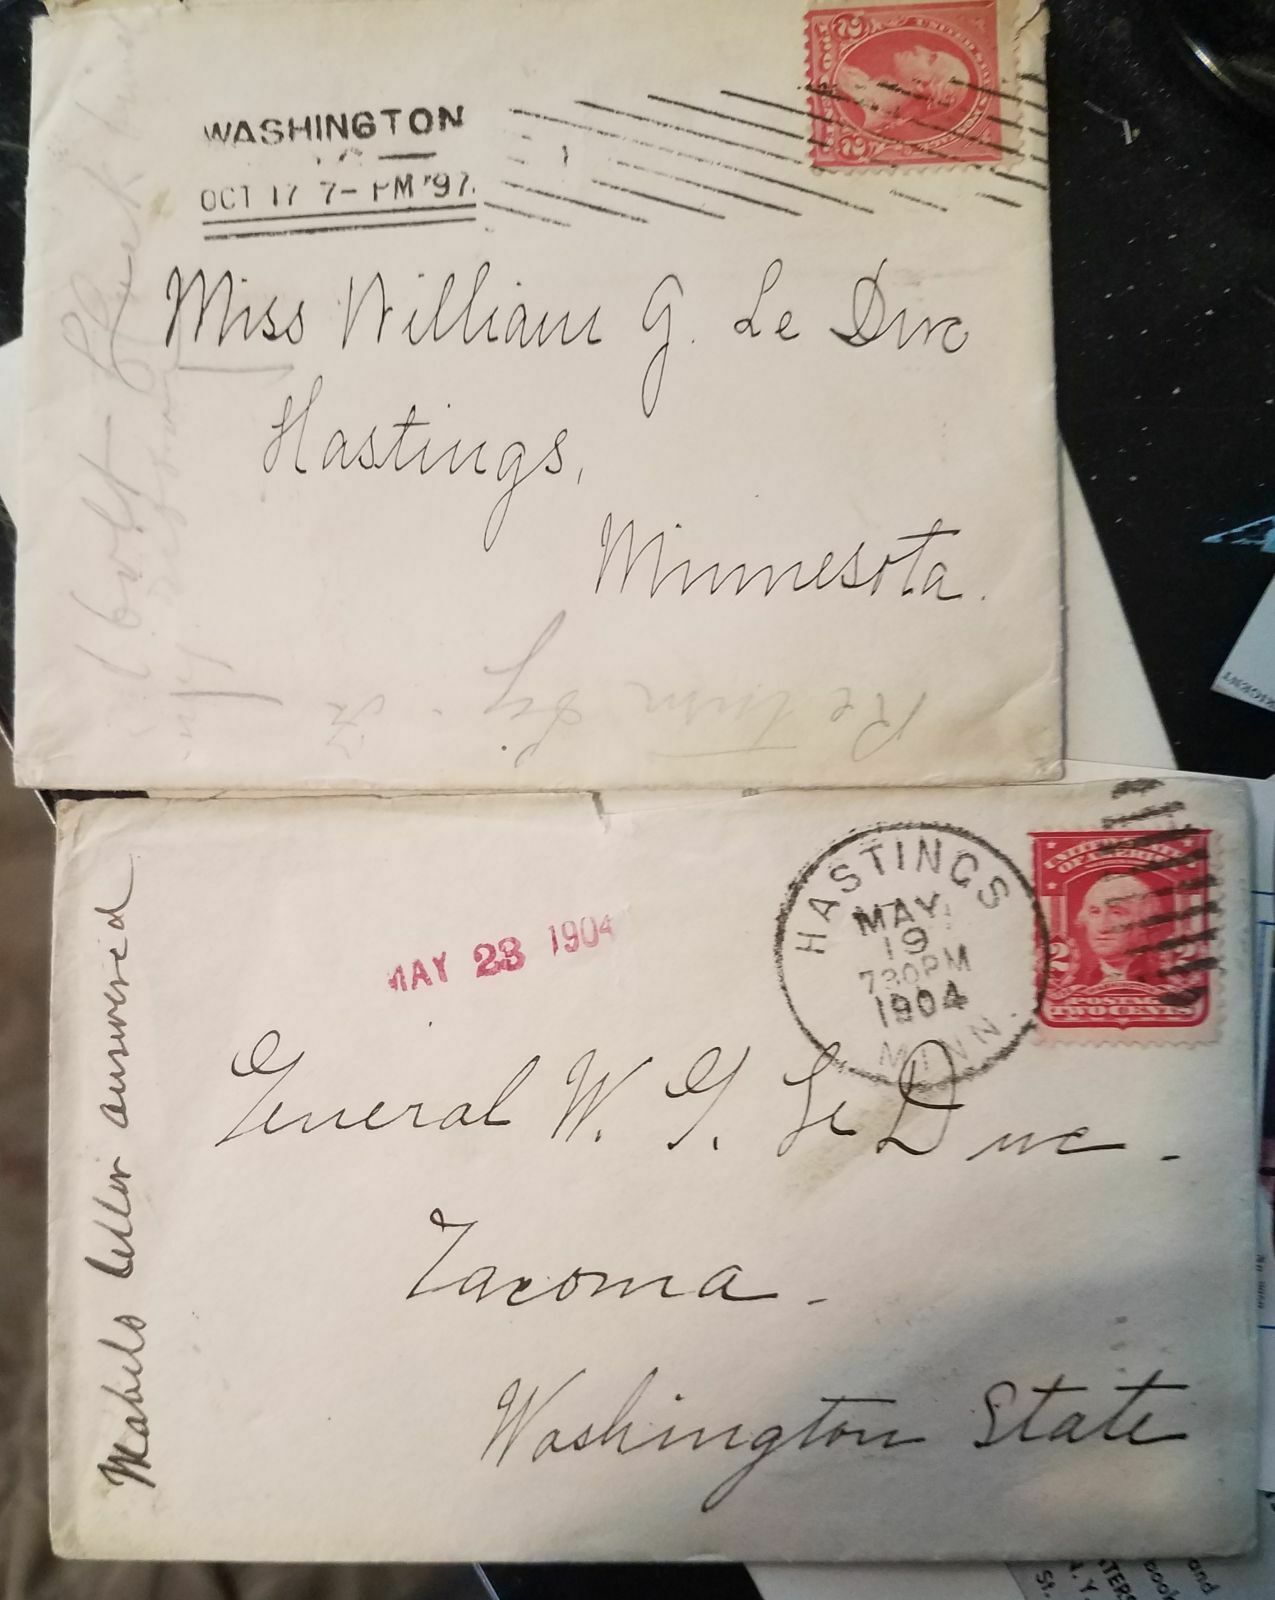 WASHINGTON
OCT 17 7- PM '97.
Miss William G. Le Duc
Hastings,
Minnesota.
Return
UNITED STATES
OF AMERICA
2 2
POSTAGE
TWO CENTS
HASTINGS
MAY
19
730PM
1904
MINN.
MAY 23 1904
General W. G. Le Duc -
Tacoma -
Washington State
Mabels letter answered